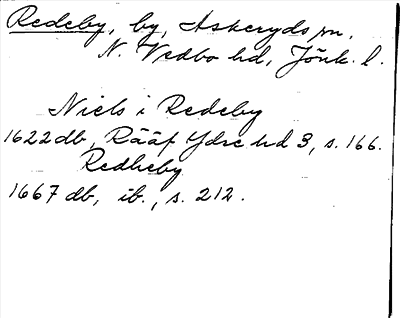 Redeby, by, Askeryds sn,
N. Vedbo hd, Jönk. l.
Niels i Redeby
1622 db, Rääf Ydre hd 3, s. 166.
Redheby
1667 db, ib., s. 212.